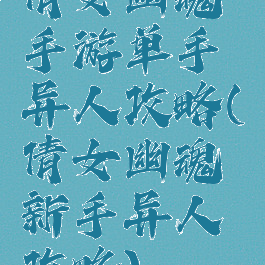 倩女幽魂
手游单手
异人攻略(
倩女幽魂
新手异人
攻略)